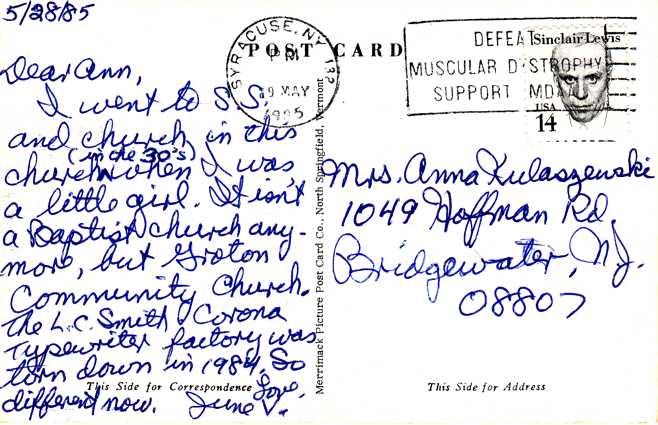 5/28/85
POST CARD
SYRACUSE, NY 132
PM
29 MAY
1985
DEFEAT
MUSCULAR DYSTROPHY
SUPPORT MDA
Sinclair Lewis
USA
14
Dear Ann,
I went to S.S.
and church in this
(in the 30's)
church when I was
a little girl. It isn't
a Baptist church any-
more, but Groton
Community Church.
The L.C. Smith-Corona
Typewriter factory was
torn down in 1984. So
different now. Love,
June
Merrimack Picture Post Card Co., North Springfield, Vermont
Mrs. Anna Kulaszewski
1049 Hoffman Rd.
Bridgewater, NJ.
08807
This Side for Correspondence
This Side for Address